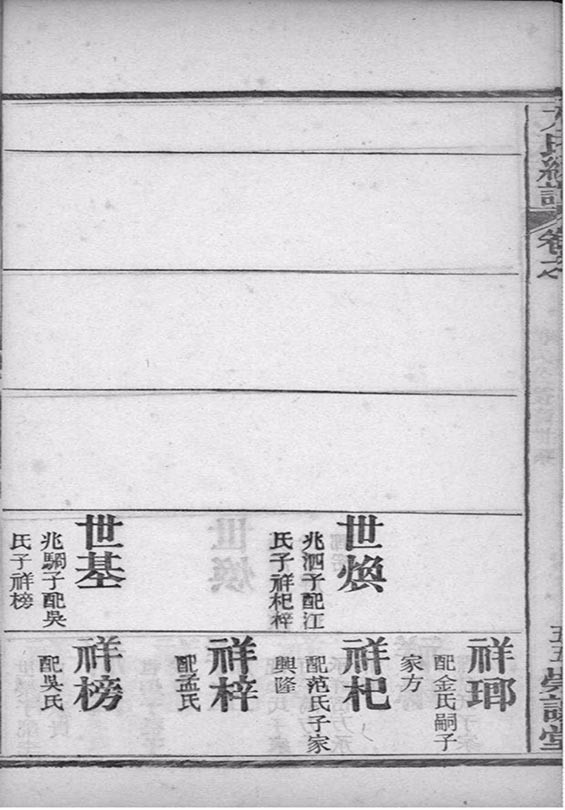 卷之
世煥
兆泗子配江
氏子祥杞梓
世基
兆駉子配吳
氏子祥榜
祥瑯
配金氏嗣子
家方
祥杞
配范氏子家
興隆
祥梓
配孟氏
祥榜
配吳氏
五五